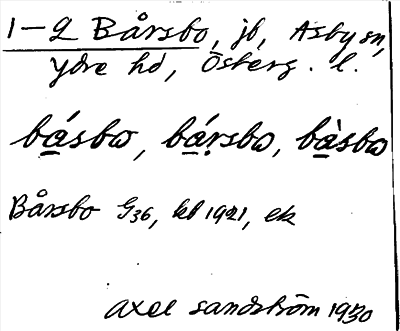 1-2 Bårsbo, jb, Asby sn,
Ydre hd, Österg. l.
básbω, bársbω, bàsbω
Bårsbo G36, kb 1921, ek
Axel Sandström 1930